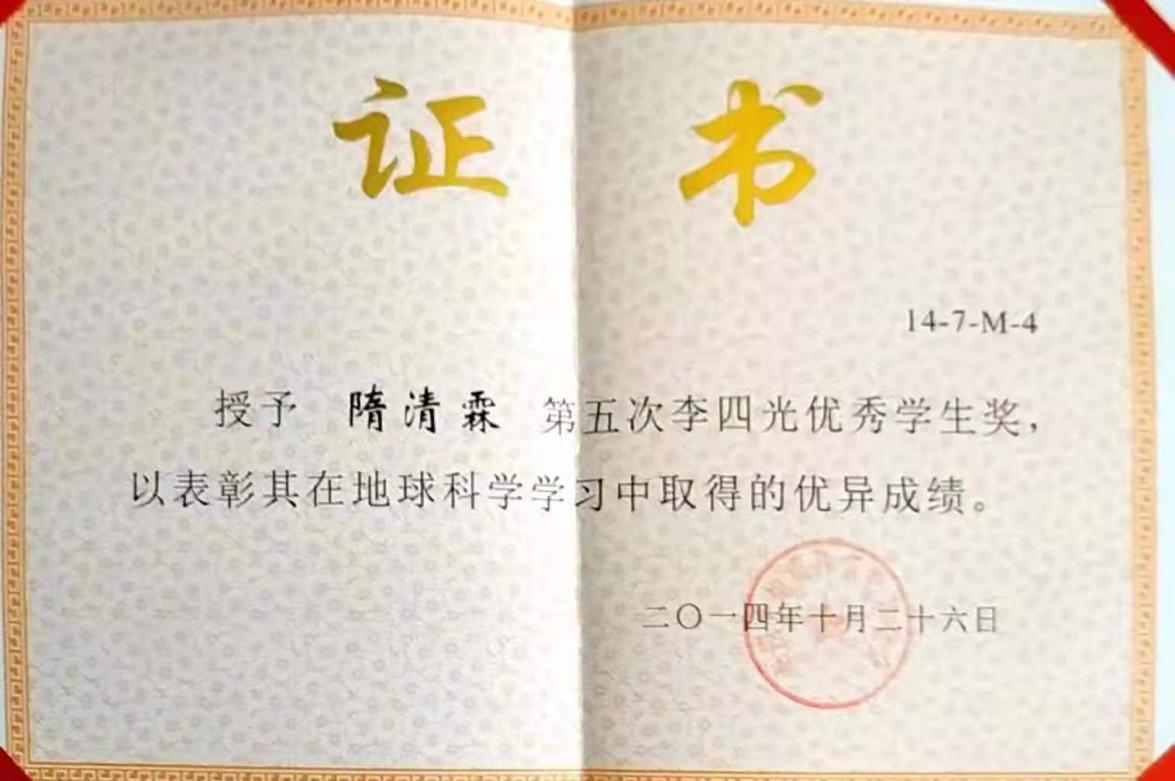 证 书
14-7-M-4
授予 隋清霖 第五次李四光优秀学生奖，
以表彰其在地球科学学习中取得的优异成绩。
二〇一四年十月二十六日